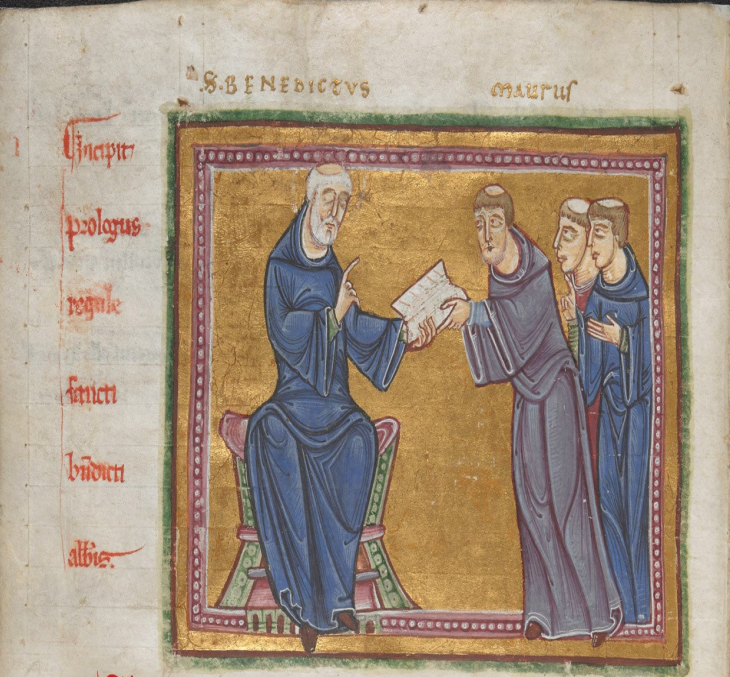 S. BENEDICTVS MAURUS
Incipit
prologus
regule
sancti
bndicti
abbis.